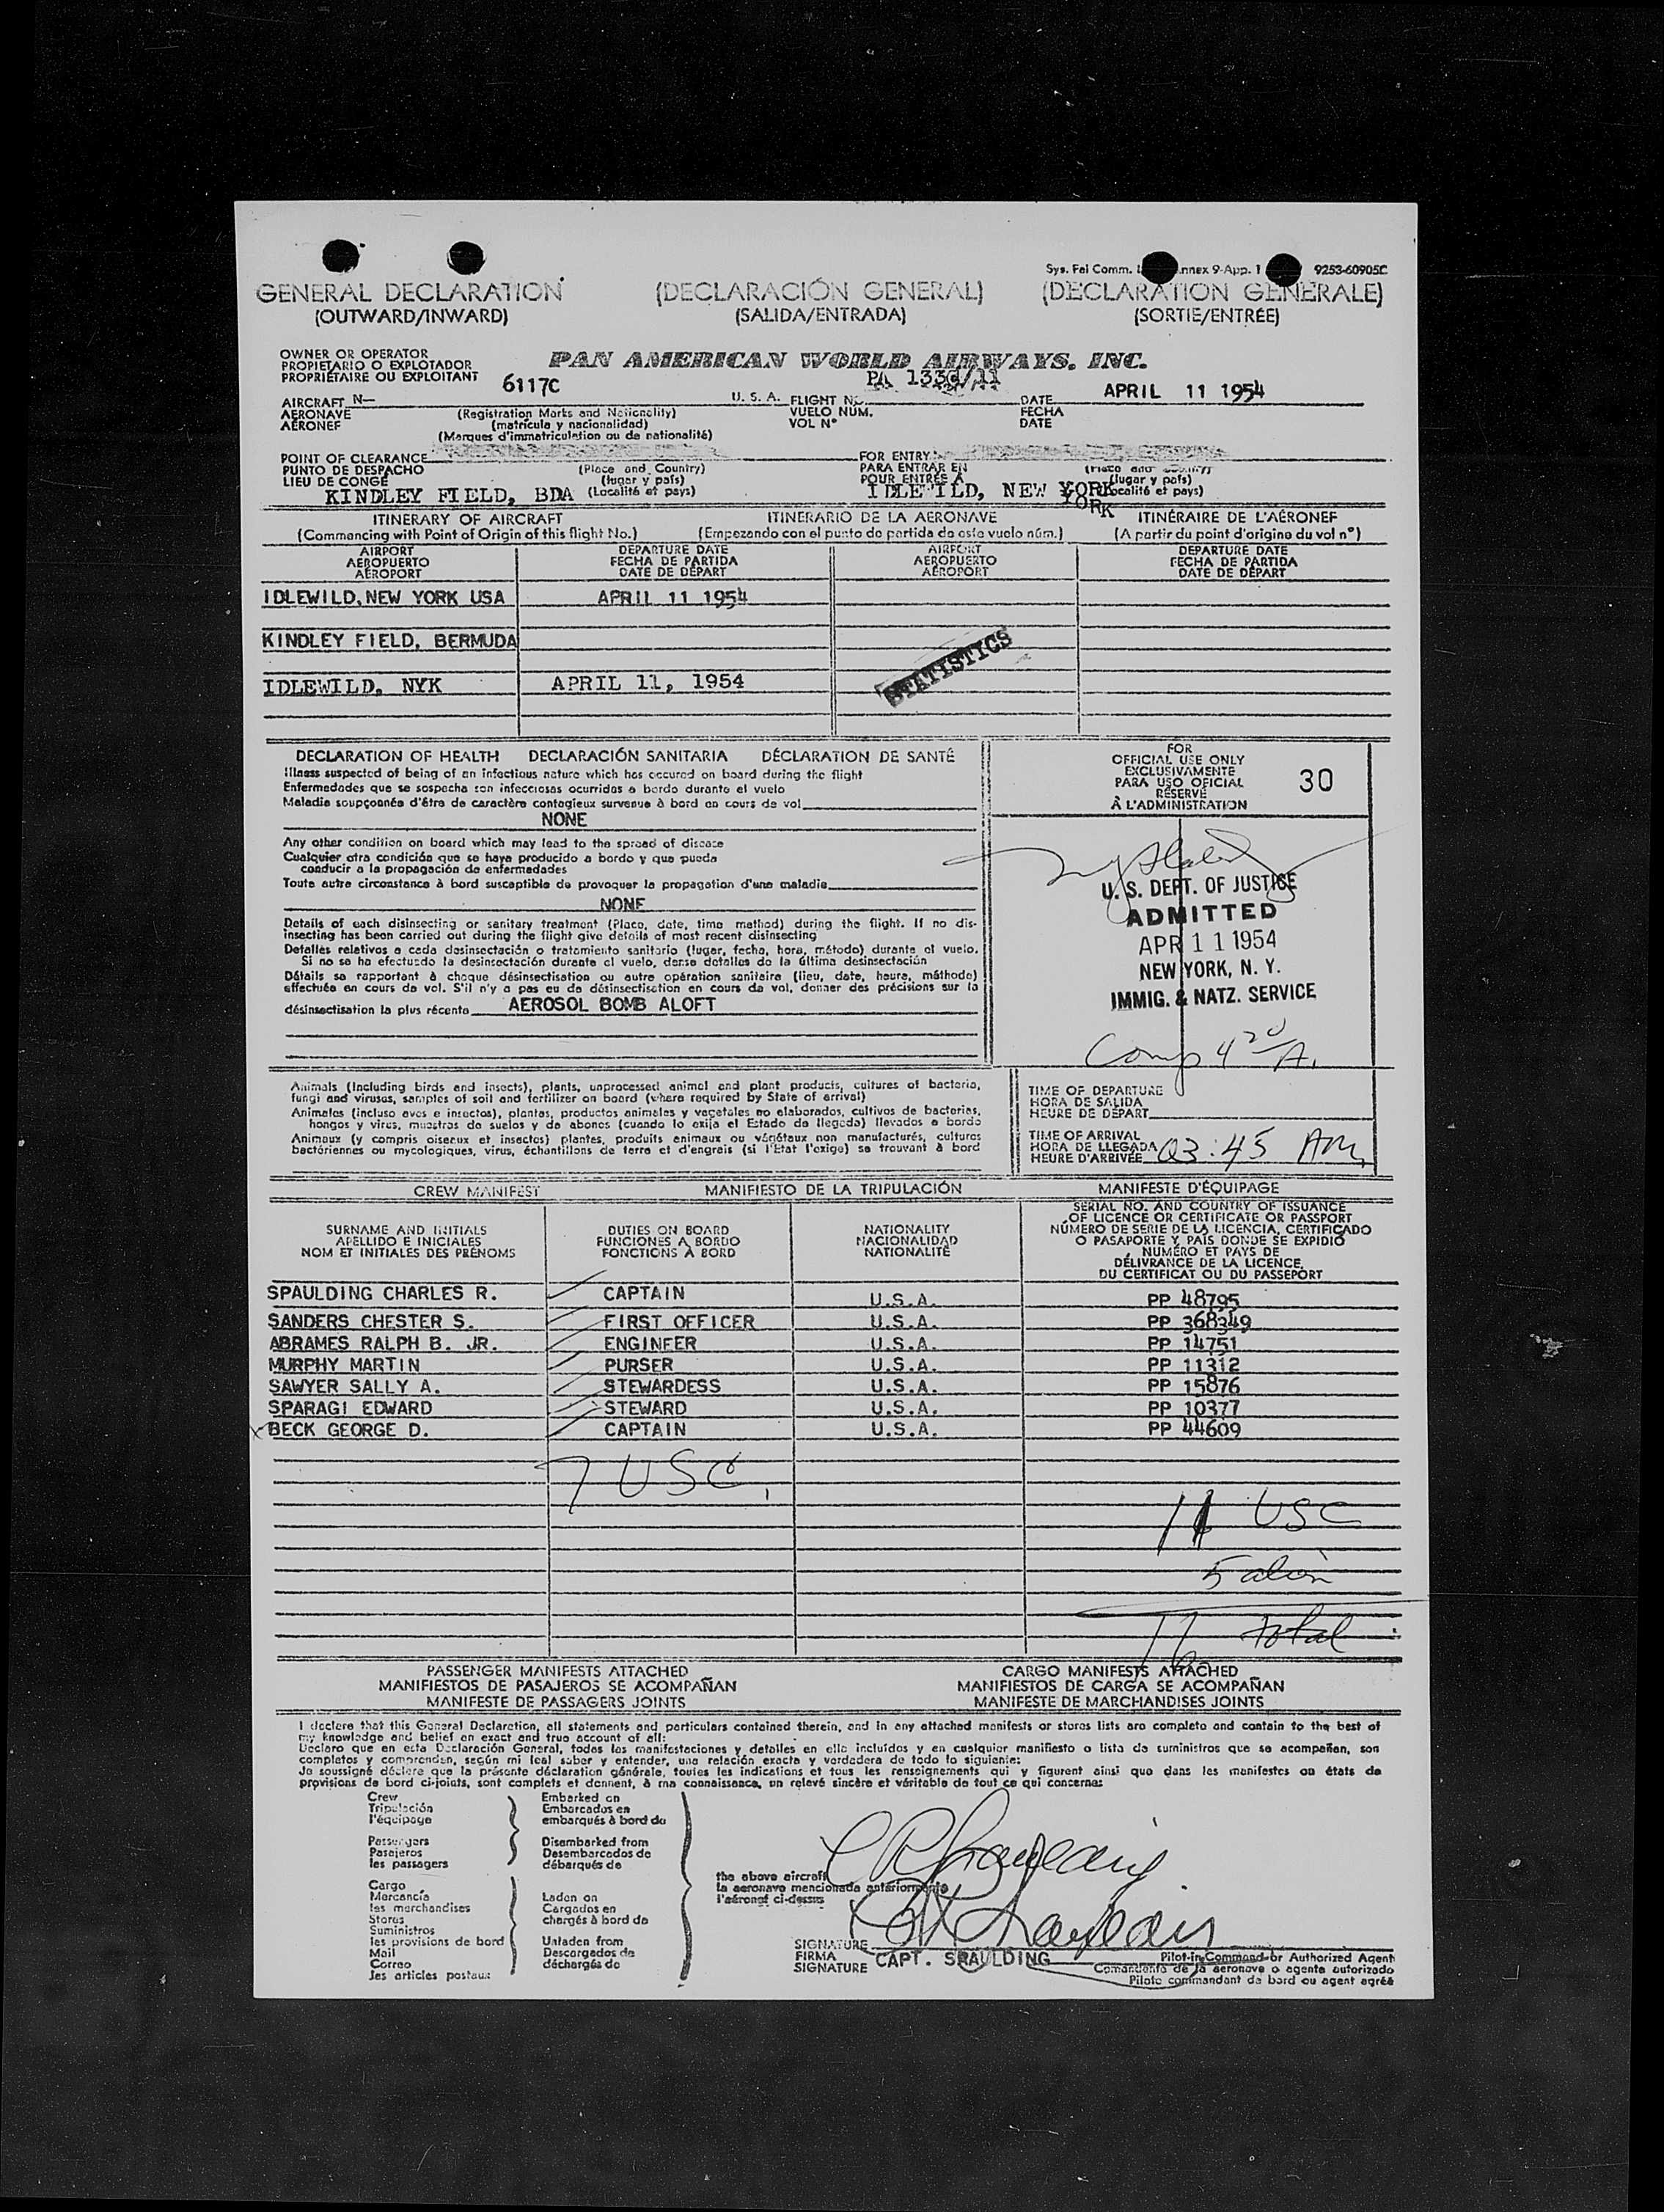 Sys. Fal Comm. nnex 9-App. 1 9253-60905C
GENERAL DECLARATION (DECLARACIÓN GENERAL) (DECLARATION GENERALE)
(OUTWARD/INWARD) (SALIDA/ENTRADA) (SORTIE/ENTRÉE)
OWNER OR OPERATOR
PROPIETARIO O EXPLOTADOR
PROPRIÉTAIRE OU EXPLOITANT
PAN AMERICAN WORLD AIRWAYS, INC.
AIRCRAFT N— 6117C U. S. A.
AERONAVE
AÉRONEF
(Registration Marks and Nationality)
(matrícula y nacionalidad)
(Marques d'immatriculation ou de nationalité)
FLIGHT NO. PA 133C/11
VUELO NÚM.
VOL Nº
DATE APRIL 11 1954
FECHA
DATE
POINT OF CLEARANCE
PUNTO DE DESPACHO
LIEU DE CONGÉ
(Place and Country)
(lugar y país)
(Localité et pays)
KINDLEY FIELD, BDA
FOR ENTRY
PARA ENTRAR EN
POUR ENTRÉE À
(lugar y país)
(Localité et pays)
IDLEWILD, NEW YORK
YORK
ITINERARY OF AIRCRAFT ITINERARIO DE LA AERONAVE ITINÉRAIRE DE L'AÉRONEF
(Commencing with Point of Origin of this flight No.) (Empezando con el punto de partida de este vuelo núm.) (A partir du point d'origine du vol nº)
AIRPORT DEPARTURE DATE AIRPORT DEPARTURE DATE
AEROPUERTO FECHA DE PARTIDA AEROPUERTO FECHA DE PARTIDA
AÉROPORT DATE DE DÉPART AÉROPORT DATE DE DÉPART
IDLEWILD, NEW YORK USA APRIL 11 1954
KINDLEY FIELD, BERMUDA
STATISTICS
IDLEWILD, NYK APRIL 11, 1954
DECLARATION OF HEALTH DECLARACIÓN SANITARIA DÉCLARATION DE SANTÉ
Illness suspected of being of an infectious nature which has occured on board during the flight
Enfermedades que se sospecha son infecciosas ocurridas a bordo durante el vuelo
Maladie soupçonnée d'être de caractère contagieux survenue à bord en cours de vol
NONE
Any other condition on board which may lead to the spread of disease
Cualquier otra condición que se haya producido a bordo y que pueda
conducir a la propagación de enfermedades
Toute autre circonstance à bord susceptible de provoquer la propagation d'une maladie
NONE
Details of each disinsecting or sanitary treatment (Place, date, time method) during the flight. If no dis-
insecting has been carried out during the flight give details of most recent disinsecting
Detalles relativos a cada desinsectación o tratamiento sanitario (lugar, fecha, hora, método) durante el vuelo.
Si no se ha efectuado la desinsectación durante el vuelo, dense detalles de la última desinsectación
Détails se rapportant à chaque désinsectisation ou autre opération sanitaire (lieu, date, heure, méthode)
effectuée en cours de vol. S'il n'y a pas eu de désinsectisation en cours de vol, donner des précisions sur la
désinsectisation la plus récente AEROSOL BOMB ALOFT
FOR
OFFICIAL USE ONLY
EXCLUSIVAMENTE
PARA USO OFICIAL
RÉSERVÉ
À L'ADMINISTRATION
30
U. S. DEPT. OF JUSTICE
ADMITTED
APR 11 1954
NEW YORK, N. Y.
IMMIG. & NATZ. SERVICE
Comp 4 20 A.
Animals (Including birds and insects), plants, unprocessed animal and plant products, cultures of bacteria,
fungi and viruses, samples of soil and fertilizer on board (where required by State of arrival)
Animales (incluso aves e insectos), plantas, productos animales y vegetales no elaborados, cultivos de bacterias,
hongos y virus, muestras de suelos y de abonos (cuando lo exija el Estado de llegada) llevados a bordo
Animaux (y compris oiseaux et insectes) plantes, produits animaux ou végétaux non manufacturés, cultures
bactériennes ou mycologiques, virus, échantillons de terre et d'engrais (si l'Etat l'exige) se trouvant à bord
TIME OF DEPARTURE
HORA DE SALIDA
HEURE DE DÉPART
TIME OF ARRIVAL
HORA DE LLEGADA
HEURE D'ARRIVÉE 03:45 AM,
CREW MANIFEST MANIFIESTO DE LA TRIPULACIÓN MANIFESTE D'ÉQUIPAGE
SURNAME AND INITIALS
APELLIDO E INICIALES
NOM ET INITIALES DES PRÉNOMS
DUTIES ON BOARD
FUNCIONES A BORDO
FONCTIONS À BORD
NATIONALITY
NACIONALIDAD
NATIONALITÉ
SERIAL NO. AND COUNTRY OF ISSUANCE
OF LICENCE OR CERTIFICATE OR PASSPORT
NÚMERO DE SERIE DE LA LICENCIA, CERTIFICADO
O PASAPORTE Y PAÍS DONDE SE EXPIDIÓ
NUMÉRO ET PAYS DE
DÉLIVRANCE DE LA LICENCE,
DU CERTIFICAT OU DU PASSEPORT
SPAULDING CHARLES R. CAPTAIN U.S.A. PP 48795
SANDERS CHESTER S. FIRST OFFICER U.S.A. PP 368349
ABRAMES RALPH B. JR. ENGINEER U.S.A. PP 14751
MURPHY MARTIN PURSER U.S.A. PP 11312
SAWYER SALLY A. STEWARDESS U.S.A. PP 15876
SPARAGI EDWARD STEWARD U.S.A. PP 10377
X BECK GEORGE D. CAPTAIN U.S.A. PP 44609
7 USC,
11 USC
5 alien
16 total
PASSENGER MANIFESTS ATTACHED CARGO MANIFESTS ATTACHED
MANIFIESTOS DE PASAJEROS SE ACOMPAÑAN MANIFIESTOS DE CARGA SE ACOMPAÑAN
MANIFESTE DE PASSAGERS JOINTS MANIFESTE DE MARCHANDISES JOINTS
I declare that this General Declaration, all statements and particulars contained therein, and in any attached manifests or stores lists are complete and contain to the best of
my knowledge and belief an exact and true account of all:
Declaro que en esta Declaración General, todas las manifestaciones y detalles en ella incluídos y en cualquier manifiesto o lista de suministros que se acompañan, son
completos y comprenden, según mi leal saber y entender, una relación exacta y verdadera de todo lo siguiente:
Je soussigné déclare que la présente déclaration générale, toutes les indications et tous les renseignements qui y figurent ainsi que dans les manifestes ou états de
provisions de bord ci-joints, sont complets et donnent, à ma connaissance, un relevé sincère et véritable de tout ce qui concerne:
Crew
Tripulación
l'équipage
Passengers
Pasajeros
les passagers
Cargo
Mercancía
les marchandises
Stores
Suministros
les provisions de bord
Mail
Correo
les articles postaux
Embarked on
Embarcados en
embarqués à bord du
Disembarked from
Desembarcados de
débarqués de
Laden on
Cargados en
chargés à bord de
Unladen from
Descargados de
déchargés de
the above aircraft
la aeronave mencionada anteriormente
l'aéronef ci-dessus
SIGNATURE
FIRMA
SIGNATURE
CAPT. SPAULDING
Pilot-in-Command or Authorized Agent
Comandante de la aeronave o agente autorizado
Pilote commandant de bord ou agent agréé